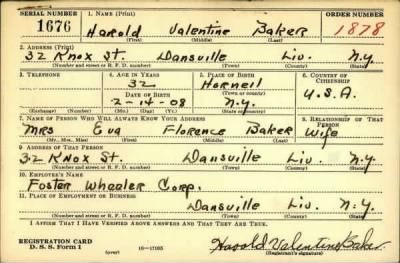 SERIAL NUMBER 1. NAME (Print) ORDER NUMBER
1676 Harold Valentine Baker 1878
(First) (Middle) (Last)
2. ADDRESS (Print)
32 Knox St. Dansville Liv. N.Y.
(Number and street or R. F. D. number) (Town) (County) (State)
3. TELEPHONE 4. AGE IN YEARS 5. PLACE OF BIRTH 6. COUNTRY OF CITIZENSHIP
32 Hornell
DATE OF BIRTH (Town or county)
2-14-08 N.Y. U.S.A.
(Exchange) (Number) (Mo.) (Day) (Yr.) (State or country)
7. NAME OF PERSON WHO WILL ALWAYS KNOW YOUR ADDRESS 8. RELATIONSHIP OF THAT PERSON
Mrs Eva Florence Baker Wife
(Mr., Mrs., Miss) (First) (Middle) (Last)
9. ADDRESS OF THAT PERSON
32 Knox St. Dansville Liv. N.Y.
(Number and street or R. F. D. number) (Town) (County) (State)
10. EMPLOYER'S NAME
Foster Wheeler Corp.
11. PLACE OF EMPLOYMENT OR BUSINESS
Dansville Liv. N.Y.
(Number and street or R. F. D. number) (Town) (County) (State)
I AFFIRM THAT I HAVE VERIFIED ABOVE ANSWERS AND THAT THEY ARE TRUE.
REGISTRATION CARD
D. S. S. Form 1 (over) 16—17105 Harold Valentine Baker
(Registrant's signature)